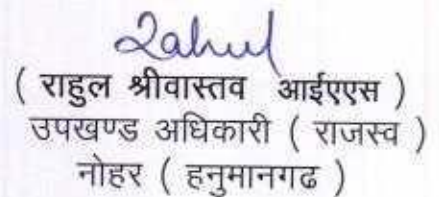 Rahul
( राहुल श्रीवास्तव आईएएस )
उपखण्ड अधिकारी ( राजस्व )
नोहर ( हनुमानगढ )